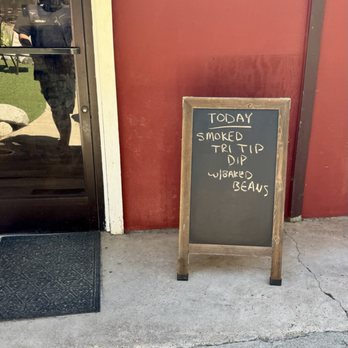 TODAY
SMOKED
TRI TIP
DIP
W/BAKED
BEANS